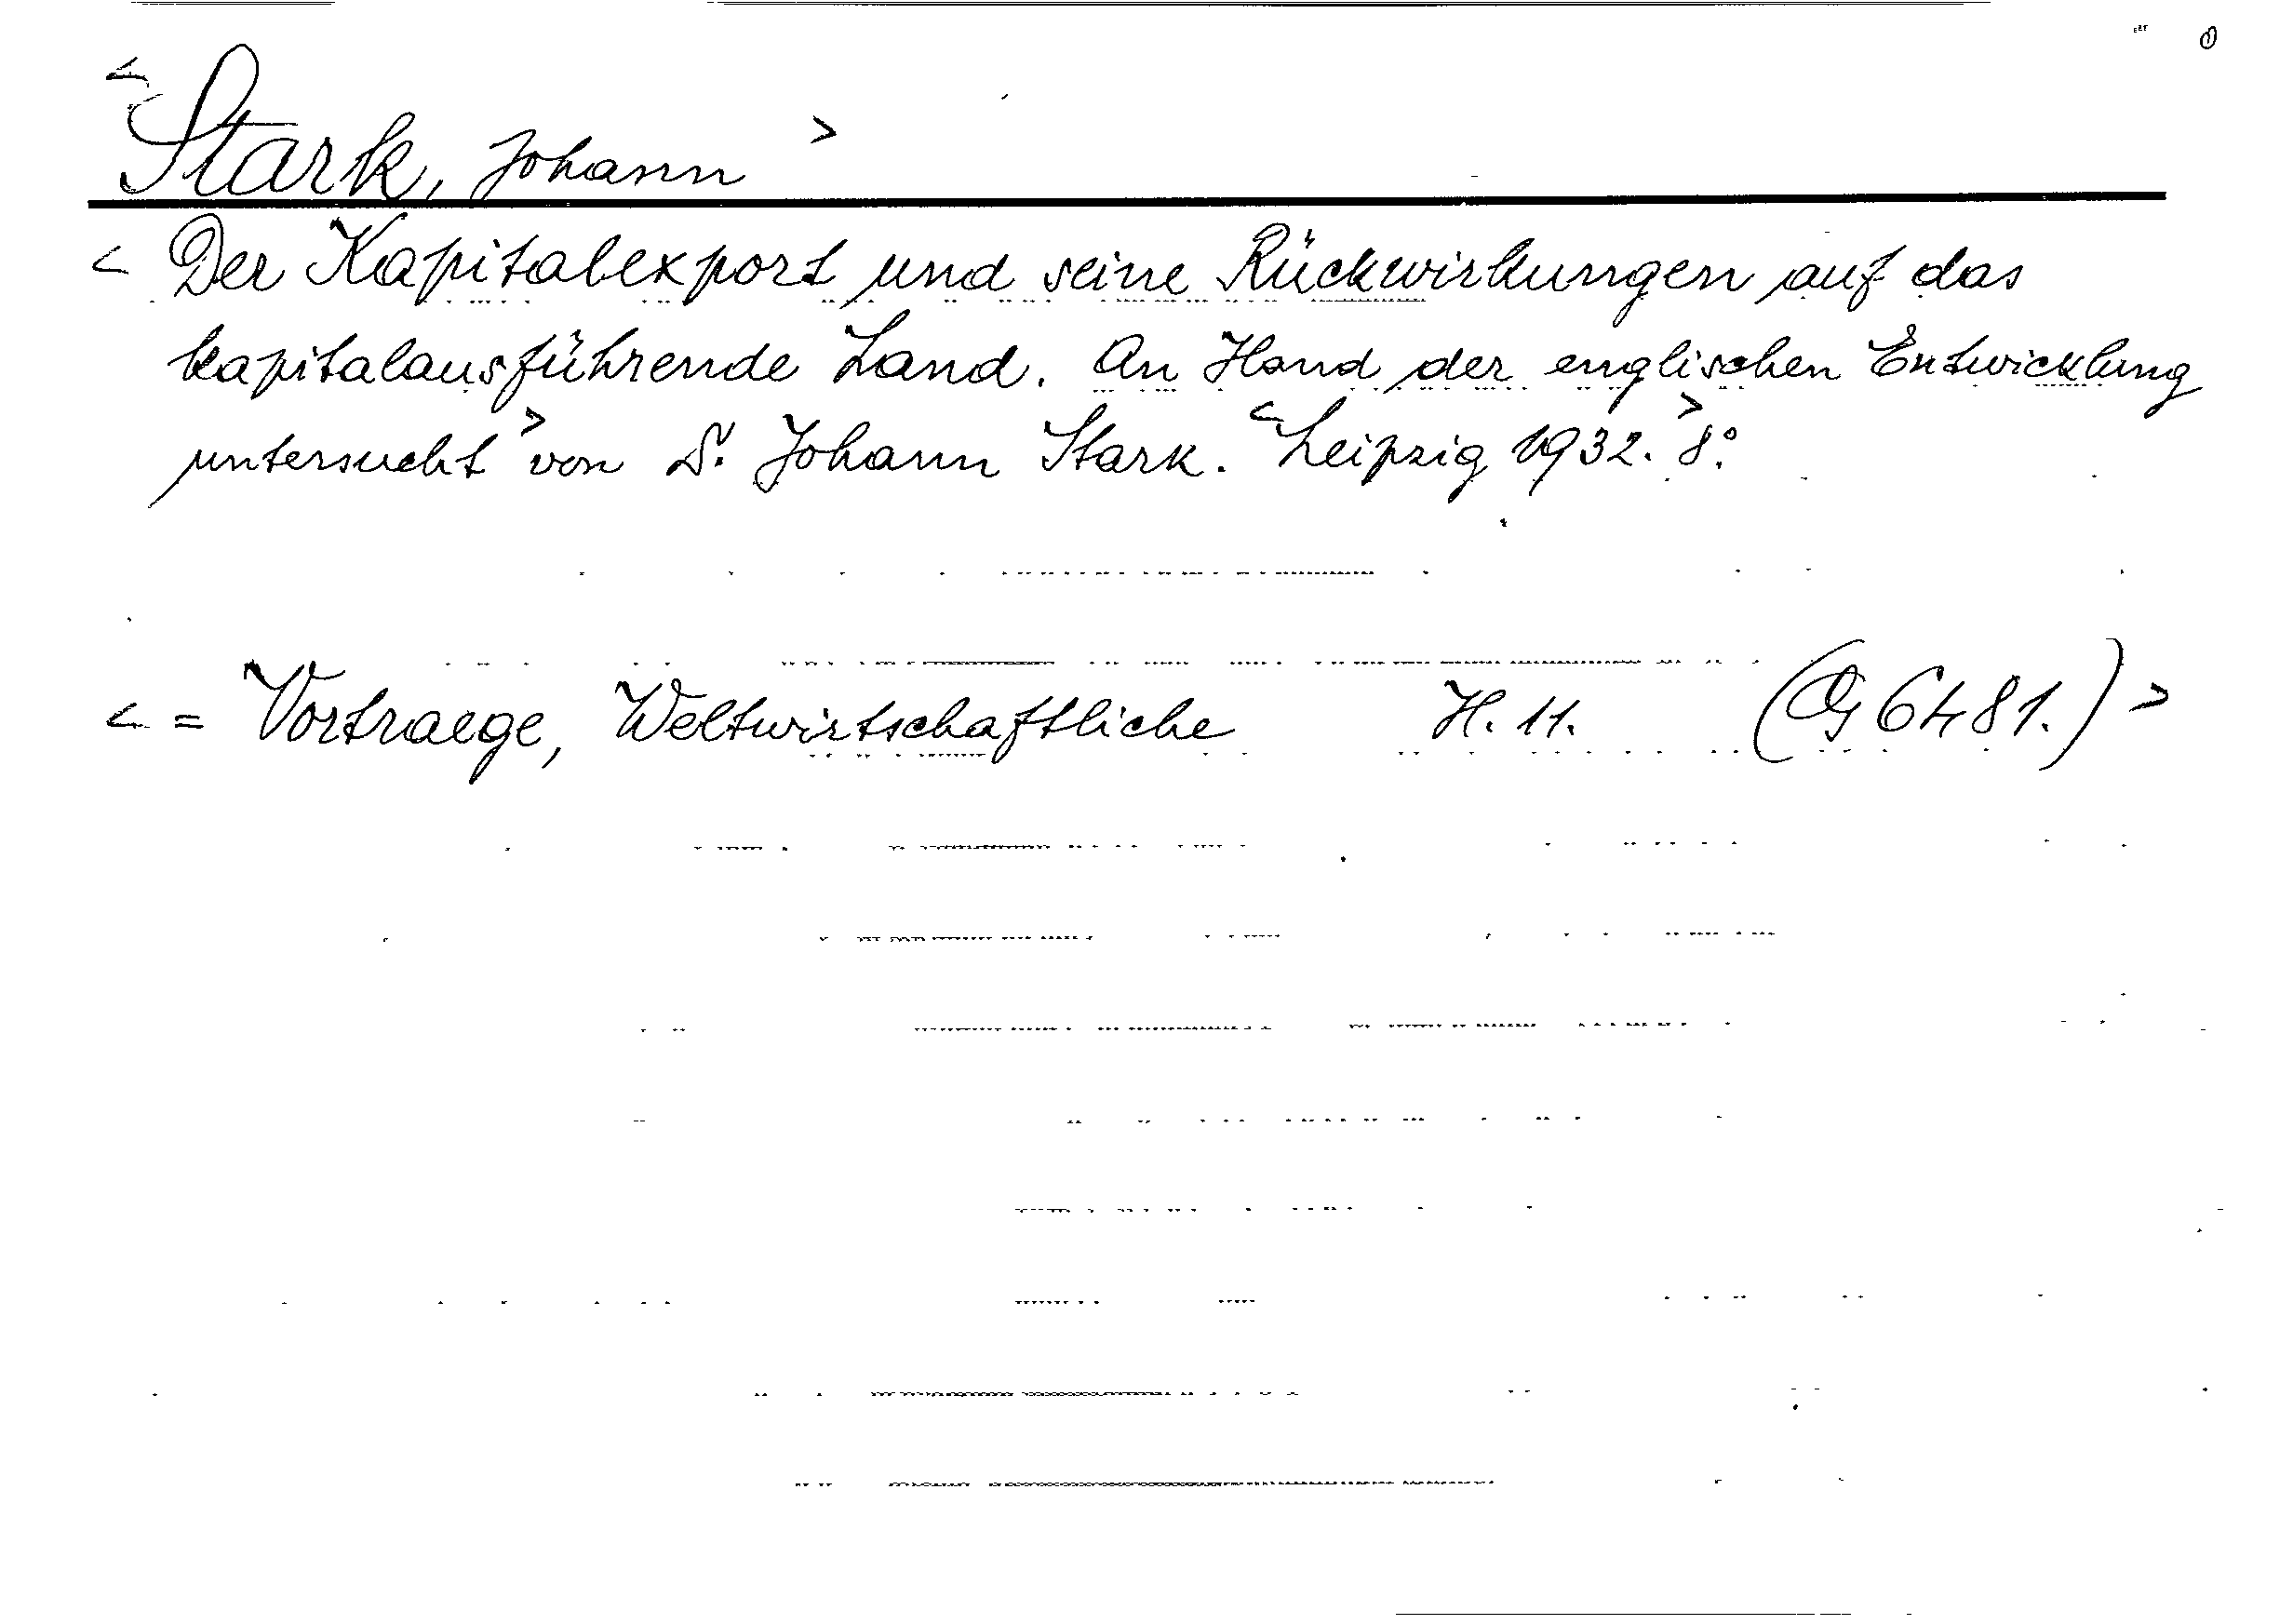 < Stark, Johann >
< Der Kapitalexport und seine Rückwirkungen auf das
kapitalausführende Land. An Hand der englischen Entwicklung
untersucht > von D. Johann Stark. < Leipzig 1932. > 8°.
< = Vortraege, Weltwirtschaftliche H. 11. (G 6481.) >